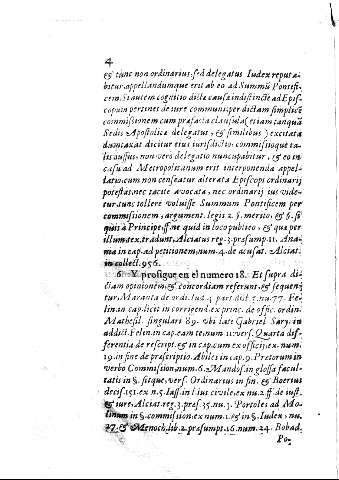 4
& tunc non ordinarius, sed delegatus Iudex reputa-
bitur, appellandumque erit ab eo ad Summũ Pontifi-
cem. Si autem cognitio dictæ causæ indistinctè ad Epis-
copum pertinet de iure communi; per dictam simplicẽ
commissionem cum præfacta clausula (etiam tanquã
Sedis Apostolicæ delegatus, & similibus) excitata
dumtaxat dicitur eius iurisdictio: commissioque ta-
lis iussus, non vero delegatio nuncupabitur, & eo in
casu ad Metropolitanum erit interponenda appel-
latio: cum non censeatur alterata Episcopi ordinarij
potestas, nec tacitè avocata, nec ordinarij ius vide-
tur tunc tollere voluisse Summum Pontificem per
commissionem, argument. legis 2. §. merito, & §. si
quis à Principe, ff. ne quid in loco publico, & quæ per
illum tex. tradunt, Alciatus reg. 3. præsump. 11. Ana-
nia in cap. ad petitionem, num. 4. de accusat. Alciat.
in collect. 956.
6 Y prosigue en el numero 18. Et supra di-
ctam opinionem & concordiam referunt & sequenţ
tur, Maranta de ordi. Iud. 4. part. dist. 5. nu. 77. Fe-
lin. an cap. licit in corrigend. ex princ. de offic. ordin.
Mathesil. singulari 89. ubi late Gabriel Sary. in
addict. Felen. in cap. eam te, num. 11. vers. Quarta dif-
ferentia de rescript. & in cap. cum ex officij; ex. num.
19. in fine de præscriptio. Abbas in cap. 9. Pretorum in
verbo Commission, num. 6. Mandos. in glossa facul-
tatis in §. sitque, vers. Ordinarius in fin. & Boerius
decis. 151. ex n. 5. Iass. in l. ius civile, ex nu. 2. ff. de iust.
& iure, Alciat. reg. 3. præs. 35. nu. 3. Portoles ad Mo-
linum in §. commission. ex num. 1. & in §. Iudex, nu.
27. & Menoch. lib. 2. præsumpt. 16. num. 24. Bobad.
Po-